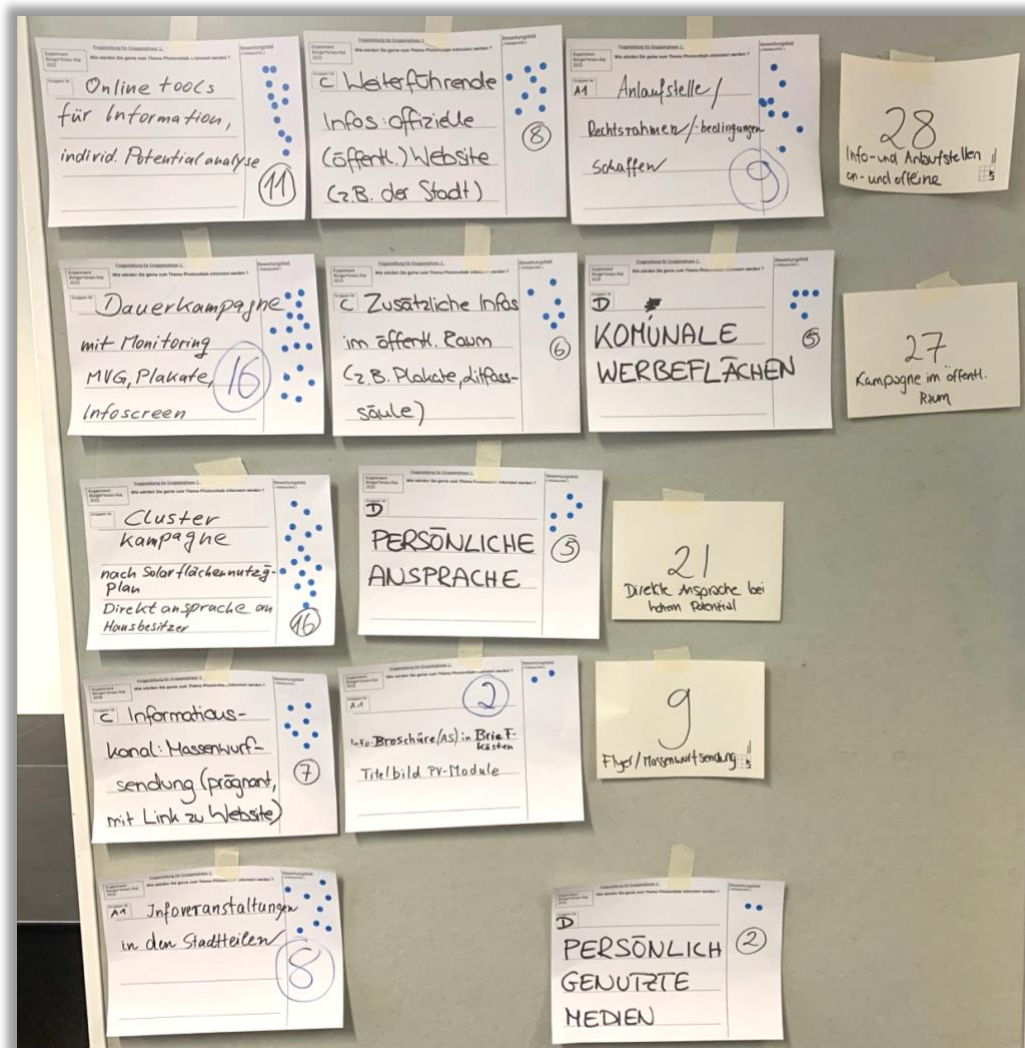 Fragestellung für Gruppenphase 1:
Wie würden Sie gerne zum Thema Photovoltaik informiert werden ?
Online tools
für Information,
individ. Potentialanalyse
11
C Weiterführende
Infos: offizielle
(öffentl.) Website
(z.B. der Stadt)
8
A1 Anlaufstelle/
Rechtsrahmen/-bedingungen
schaffen
9
28
Info- und Anlaufstellen
on- und offline
Dauerkampagne
mit Monitoring
MVG, Plakate,
Infoscreen
16
C Zusätzliche Infos
im öffentl. Raum
(z.B. Plakate, Litfass-
säule)
6
D
KOMUNALE
WERBEFLÄCHEN
5
27
Kampagne im öffentl.
Raum
Cluster
Kampagne
nach Solarflächennutzg-
plan
Direktansprache an
Hausbesitzer
16
D
PERSÖNLICHE
ANSPRACHE
5
21
Direkte Ansprache bei
hohem Potential
C Informations-
kanal: Massenwurf-
sendung (prägnant,
mit Link zu Website)
7
A1
2
Info-Broschüre(AS) in Brief-
kästen
Titelbild PV-Module
9
Flyer/Massenwurfsendung
A1 Infoveranstaltungen
in den Stadtteilen
8
D
PERSÖNLICH
GENUTZTE
MEDIEN
2